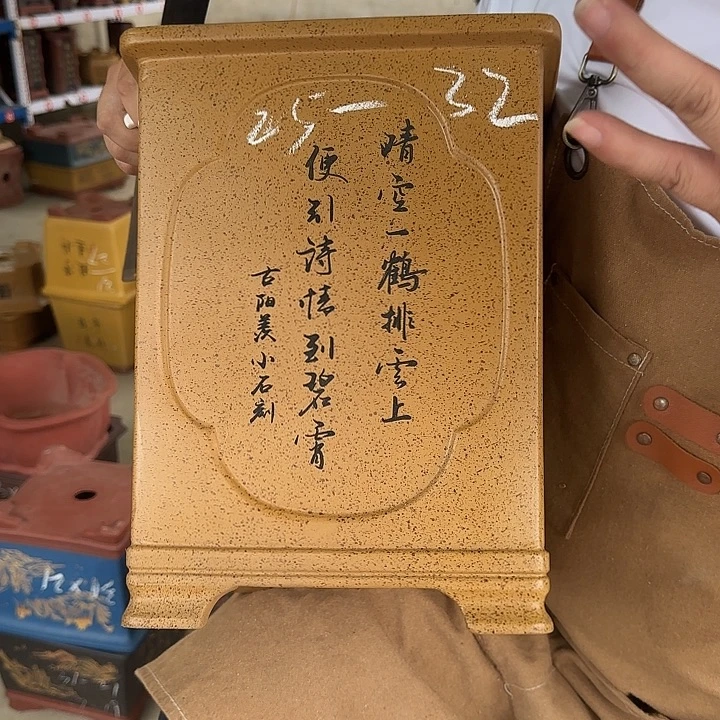 25-32
晴空一鹤排雲上
便引詩情到碧霄
古陽羨小石刻